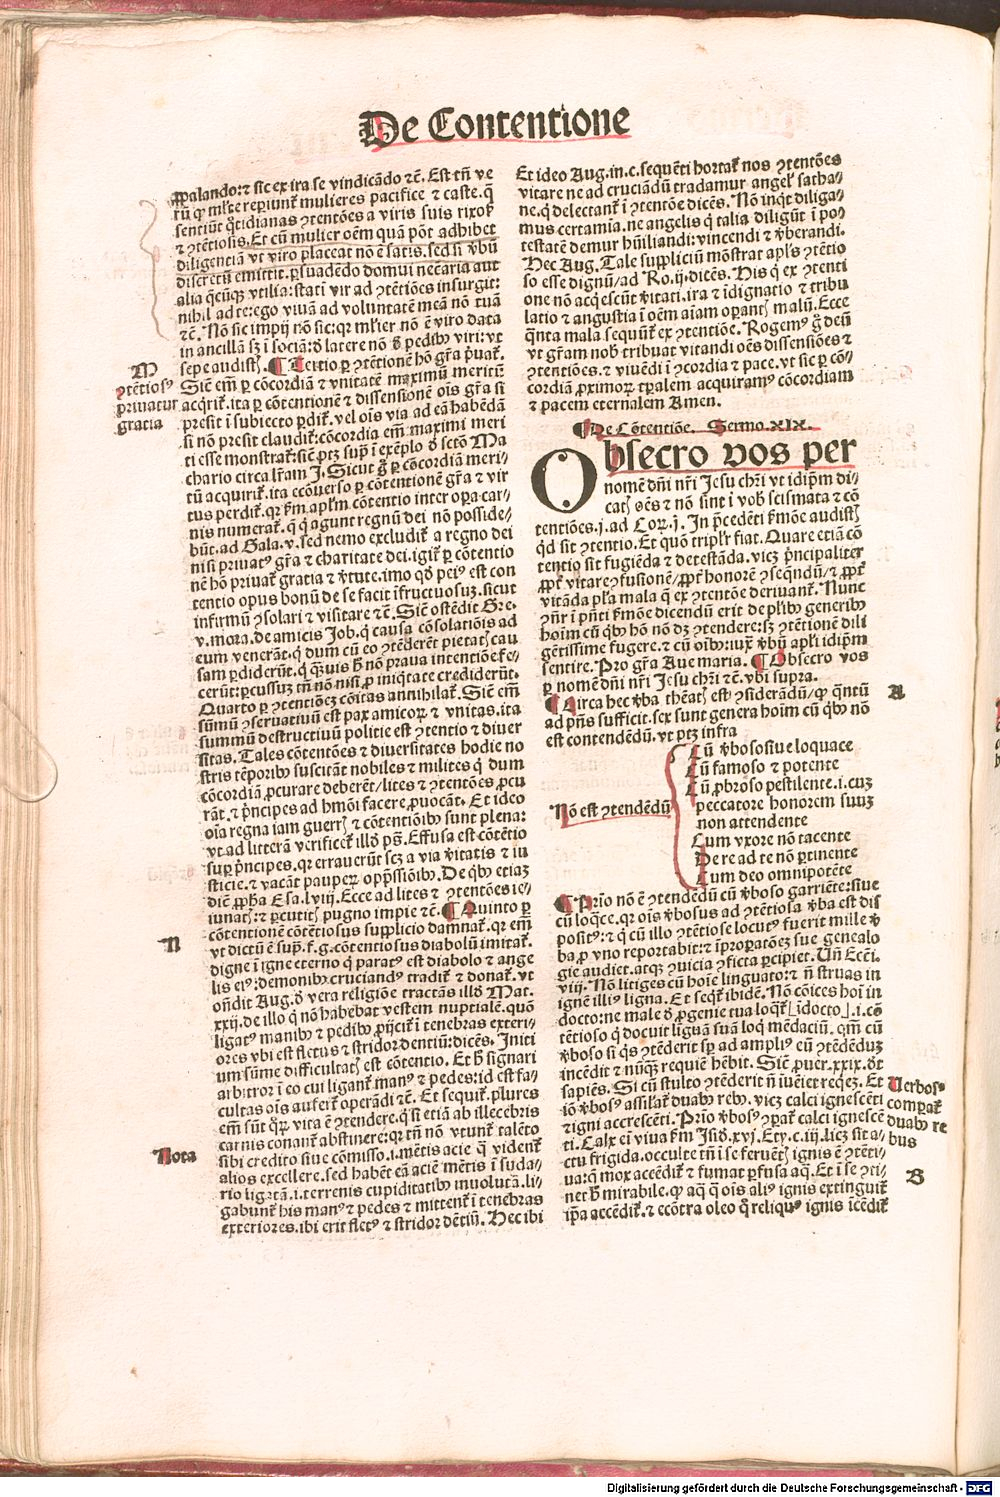 De Contentione
ꝓpalando: ⁊ sic ex ira se vindicãdo ⁊c̃. Est tñ ve
rũ ꝙ ml̃te reperiunt̃ mulieres pacifice ⁊ caste. q̃
sentiũt q̃tidianas ꝯtentões a viris suis rixoẜ
⁊ ꝯtẽtiosis. Et cũ mulier oẽm quã põt adhibet
diligenciã vt viro placeat nõ ẽ satis. sed si ṽbũ
discretũ emittit. ꝑsuadẽdo domui necãria aut
alia q̃cũqꝫ vtilia: statĩ vir ad ꝯtẽtiões insurgit:
nihil ad te: ego viuã ad voluntatẽ meã nõ tuã
⁊c̃. Nõ sic impij nõ sic: qꝛ ml̃ier nõ ẽ viro data
in ancillã sꝫ ĩ sociã: d̃ latere nõ d̃ pedibꝰ viri: vt
sepe audistꝭ. ¶ Tertio ꝑ ꝯtẽtionẽ hõ gr̃a p̃uat̃.
Siẽ em̃ ꝑ cõcordiã ⁊ vnitatẽ maximũ meritũ
acq̃rit̃. ita ꝑ cõtentionẽ ⁊ dissensionẽ oĩs gr̃a si
presit ĩ subiecto ꝑdit̃. vel oĩs via ad eã habẽdã
si nõ presit claudit̃: cõcordia em̃ maximi meri
ti esse monstrat̃: siẽ ptꝫ sup̃ ĩ exẽplo d̃ sctõ Ma
chario circa lr̃am J. Sicut g̃ ꝑ cõcordiã meri-
tũ acquirit̃. ita ecõuerso ꝑ cõtentionẽ gr̃a ⁊ vir
tus perdit̃. qꝛ s̃m apl̃m cõtentio inter oꝑa car-
nis numerat̃. q̃ q̃ agunt regnũ dei nõ posside-
bũt. ad Gala. v. sed nemo excludit̃ a regno dei
nisi priuatꝰ gr̃a ⁊ charitate dei. igit̃ ꝑ cõtentio
nẽ hõ priuat̃ gratia ⁊ ṽtute. imo qd̃ peiꝰ est con
tentio opus bonũ de se facit ĩfructuosuꝫ. sicut
infirmũ ꝯsolari ⁊ visitare ⁊c̃. Siẽ ostẽdit Gre.
v. mora. de amicis Job. q̃ causa cõsolatiõis ad
eum venerãt. q̃ dum cũ eo ꝯtẽderẽt pietatꝭ cau
sam ꝑdiderũt. q̃ q̃uis h̃ nõ praua intentiõe fe-
cerũt: ꝑcussuꝫ tñ nõ nisi ꝓ iniq̃tate crediderũt.
Quarto ꝑ ꝯtentiõeꝫ cõitas annihilat̃. Siẽ em̃
sũmũ ꝯseruatiuũ est pax amicoꝝ ⁊ vnitas. ita
summũ destructiuũ politie est ꝯtentio ⁊ diuer
sitas. Tales cõtentões ⁊ diuersitates hodie no
stris tẽporibꝰ suscitãt nobiles ⁊ milites q̃ dum
cõcordiã ꝓcurare deberẽt/ lites ⁊ ꝯtentões ꝓcu
rãt. ⁊ p̃ncipes ad hm̃oi facere ꝓuocãt. Et ideo
oĩa regna iam guerrꝭ ⁊ cõtentiõibꝰ sunt plena:
vt ad litterã verificet̃ illd̃ ps̃. Effusa est cõtẽtio
sup p̃ncipes. qꝛ errauerũt scꝫ a via ṽitatis ⁊ iu
sticie. ⁊ vacãt pauperꝝ opp̃ssiõibꝰ. De qibꝰ etiaꝫ
diẽ ꝓp̃ha Esa. lviij. Ecce ad lites ⁊ ꝯtentões ie/
iunatꝭ: ⁊ ꝑcutitꝭ pugno impie ⁊c̃. ¶ Quinto ꝑ
cõtentionẽ cõtẽtiosus supplicio damnat̃. qꝛ em̃
vt dictũ ẽ sup̃. f. g. cõtentiosus diabolũ imitat̃.
digne ĩ igne eterno q̃ paratꝰ est diabolo ⁊ ange
lis eiꝰ: demonibꝰ cruciandꝰ tradit̃ ⁊ donat̃. vt
oñdit Aug. d̃ vera religiõe tractãs illd̃ Mat.
xxij. de illo q̃ nõ habebat vestem nuptialẽ. quõ
ligatꝰ manibꝰ ⁊ pedibꝰ ꝓijcit̃ ĩ tenebras exteri/
ores vbi est fletus ⁊ stridor dentiũ: dicẽs. Initi
um sũme difficultatꝭ est cõtentio. Et h̃ signari
arbitror ĩ eo cui ligant̃ manꝰ ⁊ pedes: id est fa/
cultas oĩs aufert̃ operãdi ⁊c̃. Et sequit̃. plures
em̃ sũt q̃ꝝ vita ẽ ꝯtendere. q̃ si etiã ab illecebris
carnis conant̃ abstinere: qꝛ tñ nõ vtunt̃ talẽto
sibi credito siue cõmisso. i. mẽtis acie q̃ vident̃
alios excellere. sed habẽt eã aciẽ mẽtis ĩ suda/
rio ligatã. i. terrenis cupiditatibꝰ inuolutã. li/
gabunt̃ his manꝰ ⁊ pedes ⁊ mittent̃ ĩ tenebras
exteriores. ibi erit fletꝰ ⁊ stridor dẽtiũ. Hec ibi
M
ꝯtẽtiosꝰ
priuatur
gratia
N
Nota
Et ideo Aug. in. c. sequẽti hortat̃ nos ꝯtentões
vitare ne ad cruciãdũ tradamur angel̃ satha/
ne. q̃ delectant̃ ĩ ꝯtentõe dicẽs. Nõ inq̃t diliga-
mus certamia. ne angelis q̃ talia diligũt ĩ po/
testatẽ demur hũiliandi: vincendi ⁊ ṽberandi.
Hec Aug. Tale suppliciũ mõstrat apl̃s ꝯtẽtio
so esse dignũ/ ad Ro. ij. dicẽs. His q̃ ex ꝯtenti
one nõ acq̃escũt ṽitati. ira ⁊ ĩdignatio ⁊ tribu
latio ⁊ angustia ĩ oẽm aĩam oꝑantꝭ malũ. Ecce
q̃nta mala sequũt̃ ex ꝯtentiõe. Rogemꝰ g̃ deũ
vt gr̃am nob̃ tribuat vitandi oẽs dissensiões ⁊
ꝯtentiões. ⁊ viuẽdi ĩ ꝯcordia ⁊ pace. vt sic ꝑ cõ-
cordiã ꝓximoꝝ tp̃alem acquiramꝰ cõcordiam
⁊ pacem eternalem Amen.
¶ De Cõtentiõe. Sermo. XIX.
Obsecro vos per
nomẽ dñi nr̃i Jesu chr̃i vt idip̃m di-
catꝭ oẽs ⁊ nõ sint ĩ vob̃ scismata ⁊ cõ
tentiões. j. ad Coꝝ. j. In p̃cedẽti s̃mõe audistꝭ
q̃d sit ꝯtentio. Et quõ tripl̃r fiat. Quare etiã cõ
tentio sit fugiẽda ⁊ detestãda. viꝫ p̃ncipaliter
ꝓpt̃ vitare ꝯfusionẽ/ ꝓpt̃ honorẽ ꝯseq̃ndũ/ ⁊ ꝓpt̃
vitãda pl̃a mala q̃ ex ꝯtentõe deriuant̃. Nunc
ꝯñr ĩ p̃ñti s̃mõe dicendũ erit de pl̃ibꝰ generibꝰ
hoĩm cũ q̃bꝰ hõ nõ dꝫ ꝯtendere: sꝫ ꝯtẽtionẽ dili
gẽtissime fugere. ⁊ cũ oĩbꝰ: iux̃ ṽbũ apl̃i idip̃m
sentire. Pro gr̃a Aue maria. ¶ Obsecro vos
ꝑ nomẽ dñi nr̃i Jesu chr̃i ⁊c̃. vbi supra.
¶ Circa hec ṽba theãtꝭ est ꝯsiderãdũ/ ꝙ q̃ntũ
ad p̃ñs sufficit. sex sunt genera hoĩm cũ q̃bꝰ nõ
est contendẽdũ. vt ptꝫ infra
Nõ est ꝯtendẽdũ
Cũ ṽboso siue loquace
Cũ famoso ⁊ potente
Cũ ꝓbroso pestilente. i. cuꝫ
peccatore honorem suuꝫ
non attendente
Cum vxore nõ tacente
De re ad te nõ ꝑtinente
Cum deo omnipotẽte
¶ Prĩo nõ ẽ ꝯtendẽdũ cũ ṽboso garriẽte: siue
cũ loq̃ce. qꝛ oĩs ṽbosus ad ꝯtẽtiosa ṽba est dis
positꝰ: ⁊ q̃ cũ illo ꝯtẽtiose locutꝰ fuerit mille ṽ
ba ꝓ vno reportabit: ⁊ ĩproꝑatõeꝫ sue genealo
gie audiet. atqꝫ ꝯuicia ꝯficta ꝑcipiet. Uñ Ecc̃i.
viij. Nõ litiges cũ hoĩe linguato: ⁊ ñ struas in
ignẽ illiꝰ ligna. Et seqt̃ ibidẽ. Nõ cõices hoĩ in
docto: ne male d̃ ꝓgenie tua loqt̃. [idocto]. i. cõ
tẽtioso q̃ docuit liguã suã loq̃ mẽdaciũ. qm̃ cũ
ṽboso si q̃s ꝯtẽderit sꝑ ad ampliꝰ eũ ꝯtẽdẽduꝫ
incẽdit ⁊ nũq̃ꝫ requiẽ hẽbit. Siẽ ꝓuer. xxix. dt̃
sapiẽs. Si cũ stulto ꝯtẽderit ñ iuẽiet reqeꝫ. Et
iõ ṽbosꝰ assilat̃ duabꝰ rebꝰ. viꝫ calci ignescẽti
⁊ igni accrescẽti. Prĩo ṽbosꝰ ꝯꝑat̃ calci ignescẽ
ti. Calx ei viua s̃m Isid. xvj. Ety. c. iij. licꝫ sit a/
ctu frigida. occulte tñ ĩ se feruetꝭ ignis ẽ ꝯtẽti/
ua: q̃ mox accẽdit̃ ⁊ fumat ꝑfusa aq̃. Et ĩ se ꝯti/
net h̃ mirabile. ꝙ aq̃ q̃ oĩs aliꝰ ignis extinguit̃
ip̃a accẽdit̃. ⁊ ecõtra oleo q̃ reliquꝰ ignis ĩcẽdit̃
A
Uerbosꝰ
comparat̃
duabꝰ re
bus
B
Digitalisierung gefördert durch die Deutsche Forschungsgemeinschaft - DFG